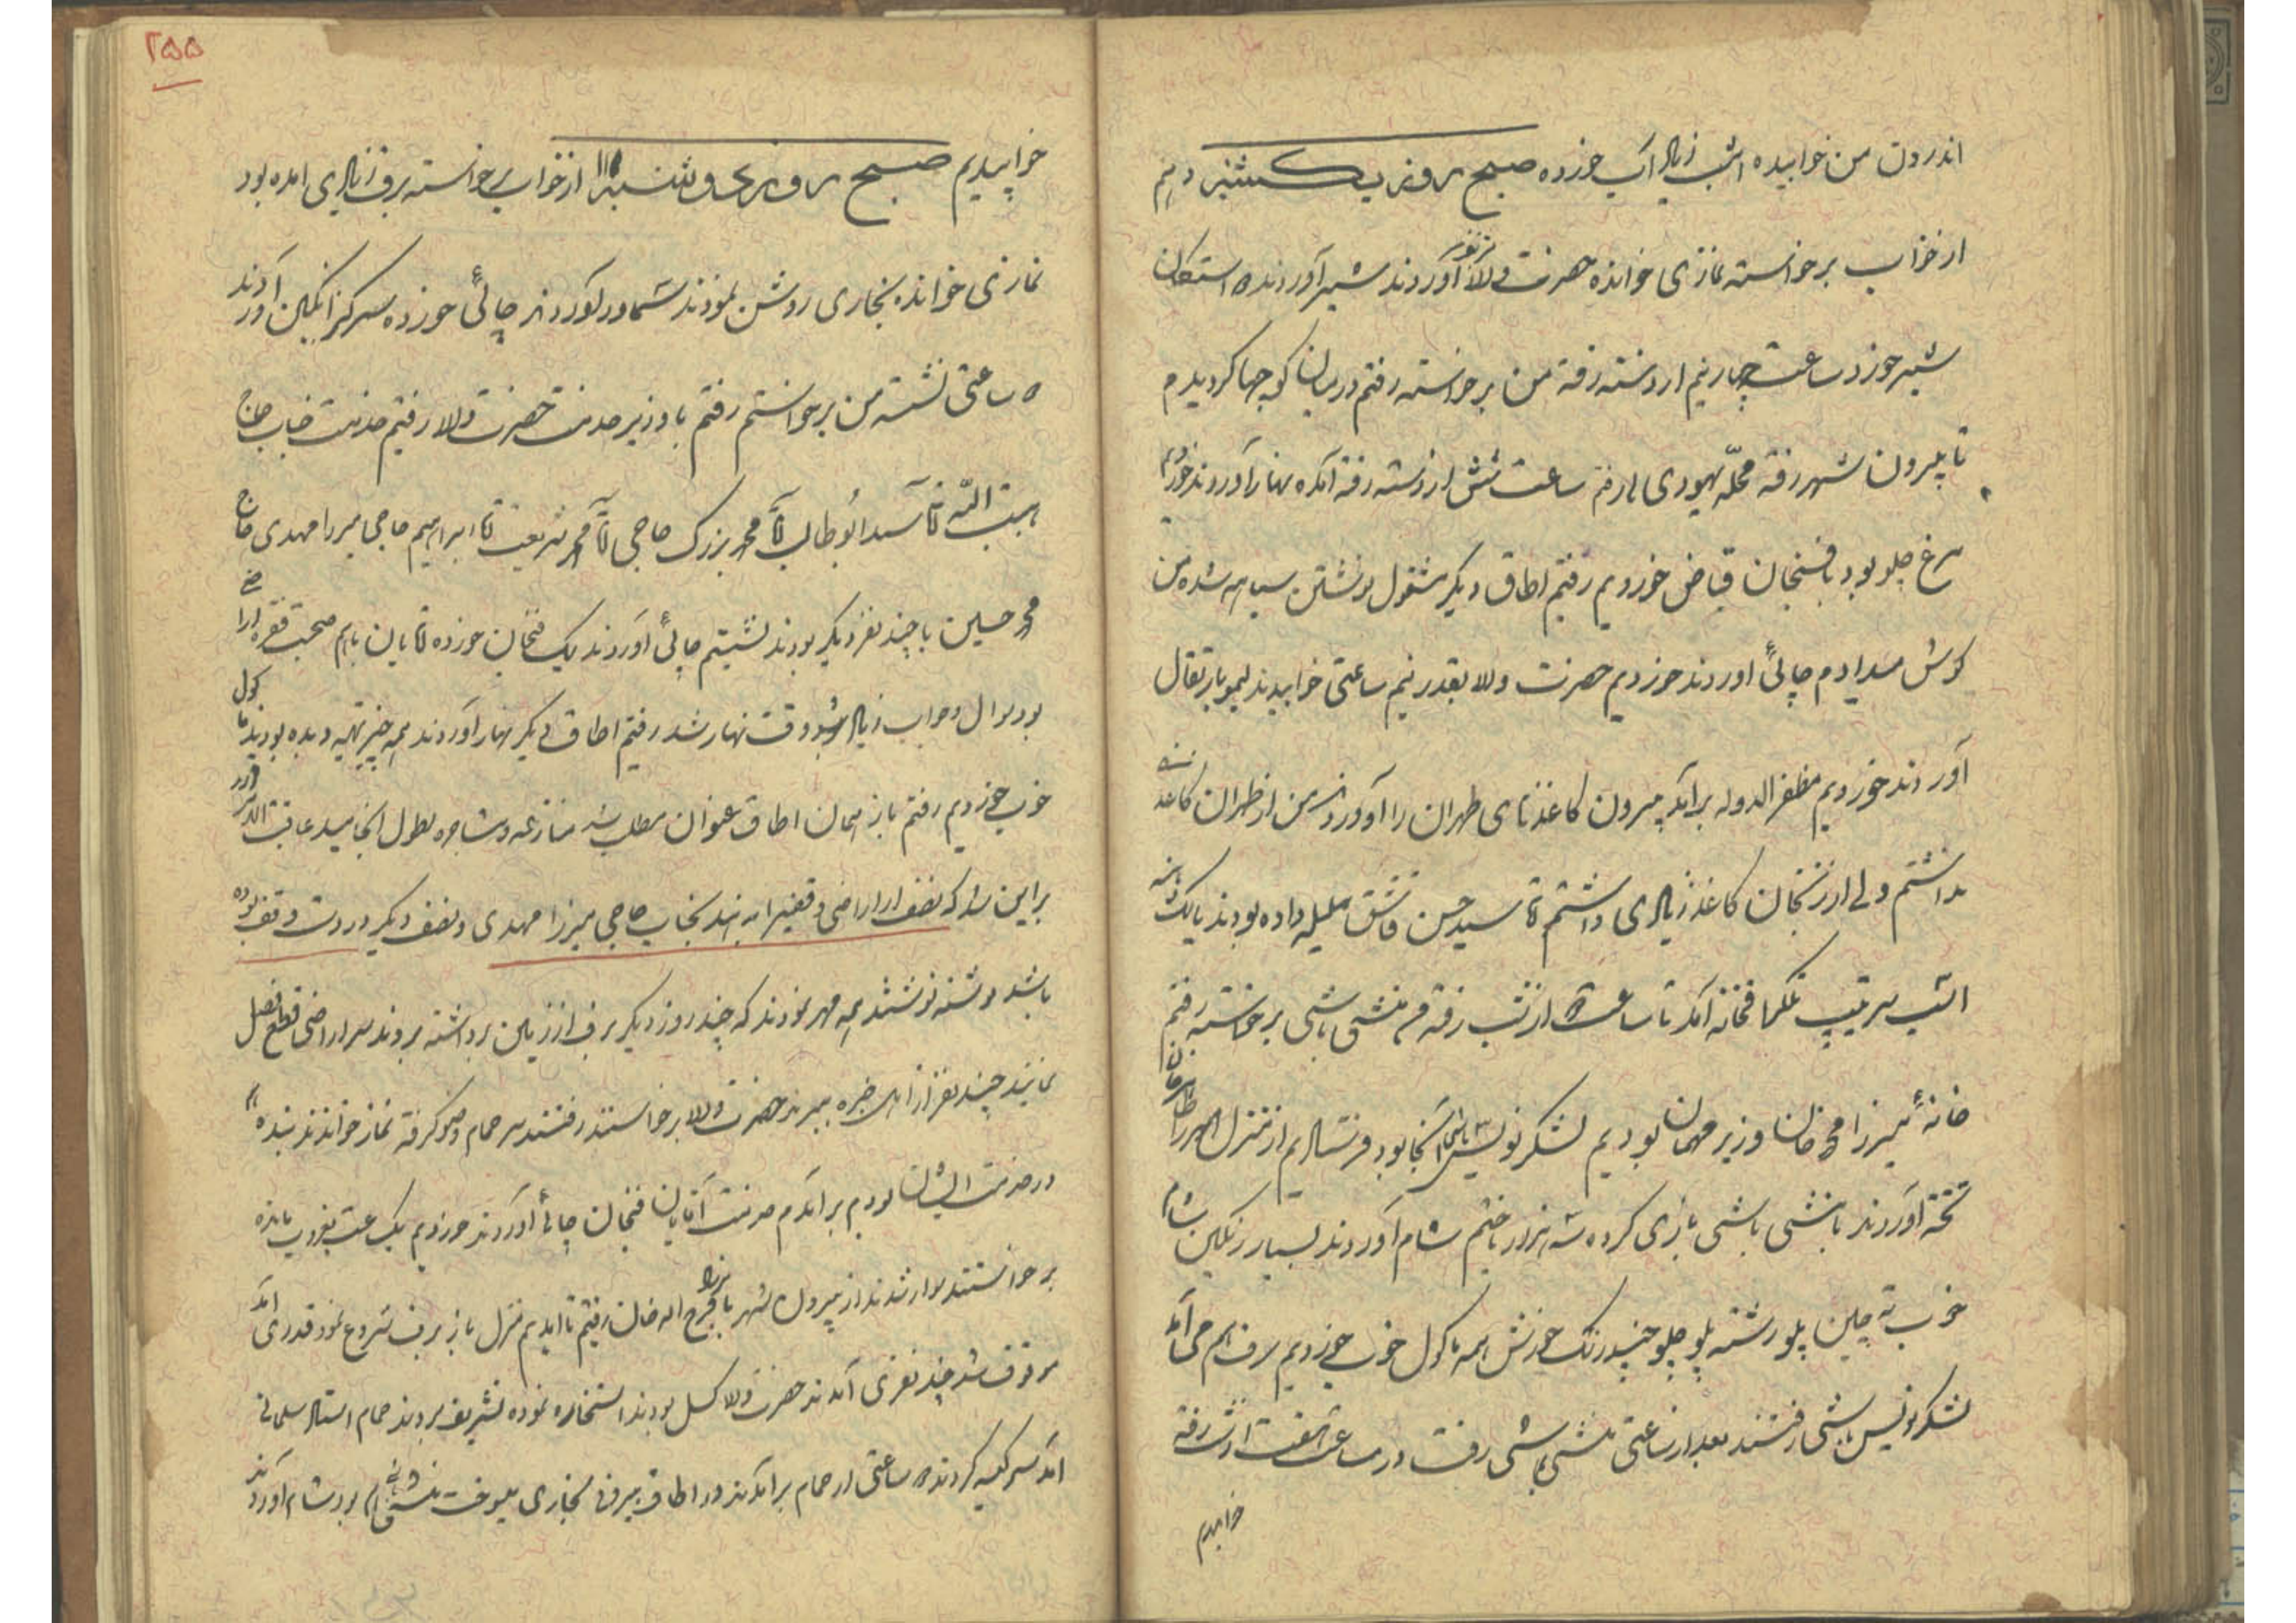 اندرون من خوابیده امشب زیاد آب خورده صبح روز یکشنبه دهم
از خواب برخواسته نمازی خوانده حضرت والا آوردند شیر آوردند استکان
شیر خورد ساعت چهار نیم از دسته رفته من برخواسته رفتم در میان کوچها کردیدم
تا بیرون شهر رفته محلّه یهودی ها رفتم ساعت شش از دسته رفته آمده نهار آوردند خوردم
مرغ چلو بود با فسنجان قیاض خوردیم رفتم اطاق دیکر مشغول نوشتن سیاهه شده من
کوش میدادم چائی اوردند خوردیم حضرت والا بقدر نیم ساعتی خوابیدند لیمو با پرتقال
آوردند خوردیم مظفر الدوله برآمد بیرون کاغذهای طهران را آوردند من از طهران کاغذ
نداشتم ولی از زنجان کاغذ زیادی داشتم آقا سید حسن قاشق ملیله داده بودند با یک
امشب سرتیپ تلکرافخانه آمد تا ساعت از شب رفته منشی باشی برخواسته رفتم
خانهٔ میرزا محمد خان وزیر مهمان بودیم لشکر نویس باشی آنجا بود فرستادیم از منزل
تخته آوردند با منشی باشی بازی کرده سه هزار باختم شام آوردند بسیار رنکین شام
خوب ته چین پلو رشته پلو چلو چند رنک خورش همه ماکول خوب خوردیم برف هم می آمد
لشکر نویس باشی رفتند بعد از ساعتی منشی باشی رفت در ساعت هفت از شب رفته
خوابیدم
۲۵۵
خوابیدیم صبح روز دوشنبه ۱۱ از خواب برخواسته برف زیادی امده بود
نمازی خوانده بخاری روشن نمودند سماور آوردند چائی خورده سرکه انکبین آوردند
ساعتی نشسته من برخواستم رفتم با وزیر خدمت حضرت والا رفتیم خدمت جناب حاج
هبت الله آقا سید ابوطالب آقا محمد بزرک حاجی آقا محمد شریعت آقا ابراهیم حاجی میرزا مهدی حاج
محمد حسین با چند نفر دیکر بودند نشستیم چائی اوردند یک فنجان خورده آقایان باهم صحبت
بود سوال و جواب زیاد شد وقت نهار شد رفتیم اطاق دیکر نهار آوردند همه چیز تهیه دیده بودند ماکول
خوب خوردیم رفتم باز همان اطاق عنوان مطلب شد منازعه و مشاجره بطول انجامید عاقبت
بر این شد که نصف از اراضی وقفیرا بدهند بجناب حاجی میرزا مهدی و نصف دیکر در دست وقف بوده
باشد نوشته نوشتند همه مهر نمودند که چند روز دیکر برف از زمین برداشته بروند سر اراضی قطع فصل
نمایند چند نفر از اهل خبره ببرند حضرت والا برخواستند رفتند سر حمام وضو کرفته نماز خواندند بنده هم
در خدمت ایشان بودم برآمدم خدمت آقایان فنجان چائی آوردند خوردیم یک ساعت بغروب مانده
برخواستند سوار شدند از بیرون شهر با فرج اله خان رفتیم تا آمدیم منزل باز برف شروع نمود قدری آمد
موقوف شد چند نفری آمدند حضرت والا کسل بودند استخاره نموده تشریف بردند حمام استاد سلمانی
آمد سر کیسه کردند ساعتی از حمام برآمدند در اطاق بیرونی بخاری میسوخت منشی باشی هم بود شام آوردند